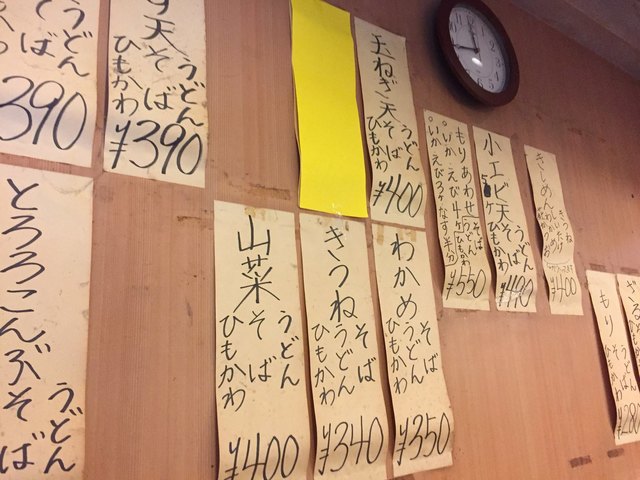 うどん
そば
390
天そば
うどん
ひもかわ
¥390
玉ねぎ天そば
うどん
ひもかわ
¥400
もりあわせ
そば
うどん
ひもかわ
¥550
小エビ天そば
5ケ
うどん
ひもかわ
きしめん
きつね
¥400
とろろこんぶそば
うどん
山菜そば
うどん
ひもかわ
¥400
きつねそば
うどん
ひもかわ
¥340
わかめそば
うどん
ひもかわ
¥350
もり
そば
うどん